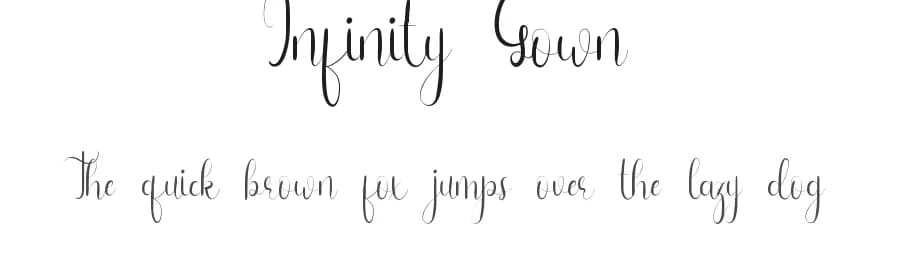 Infinity Gown
The quick brown fox jumps over the lazy dog